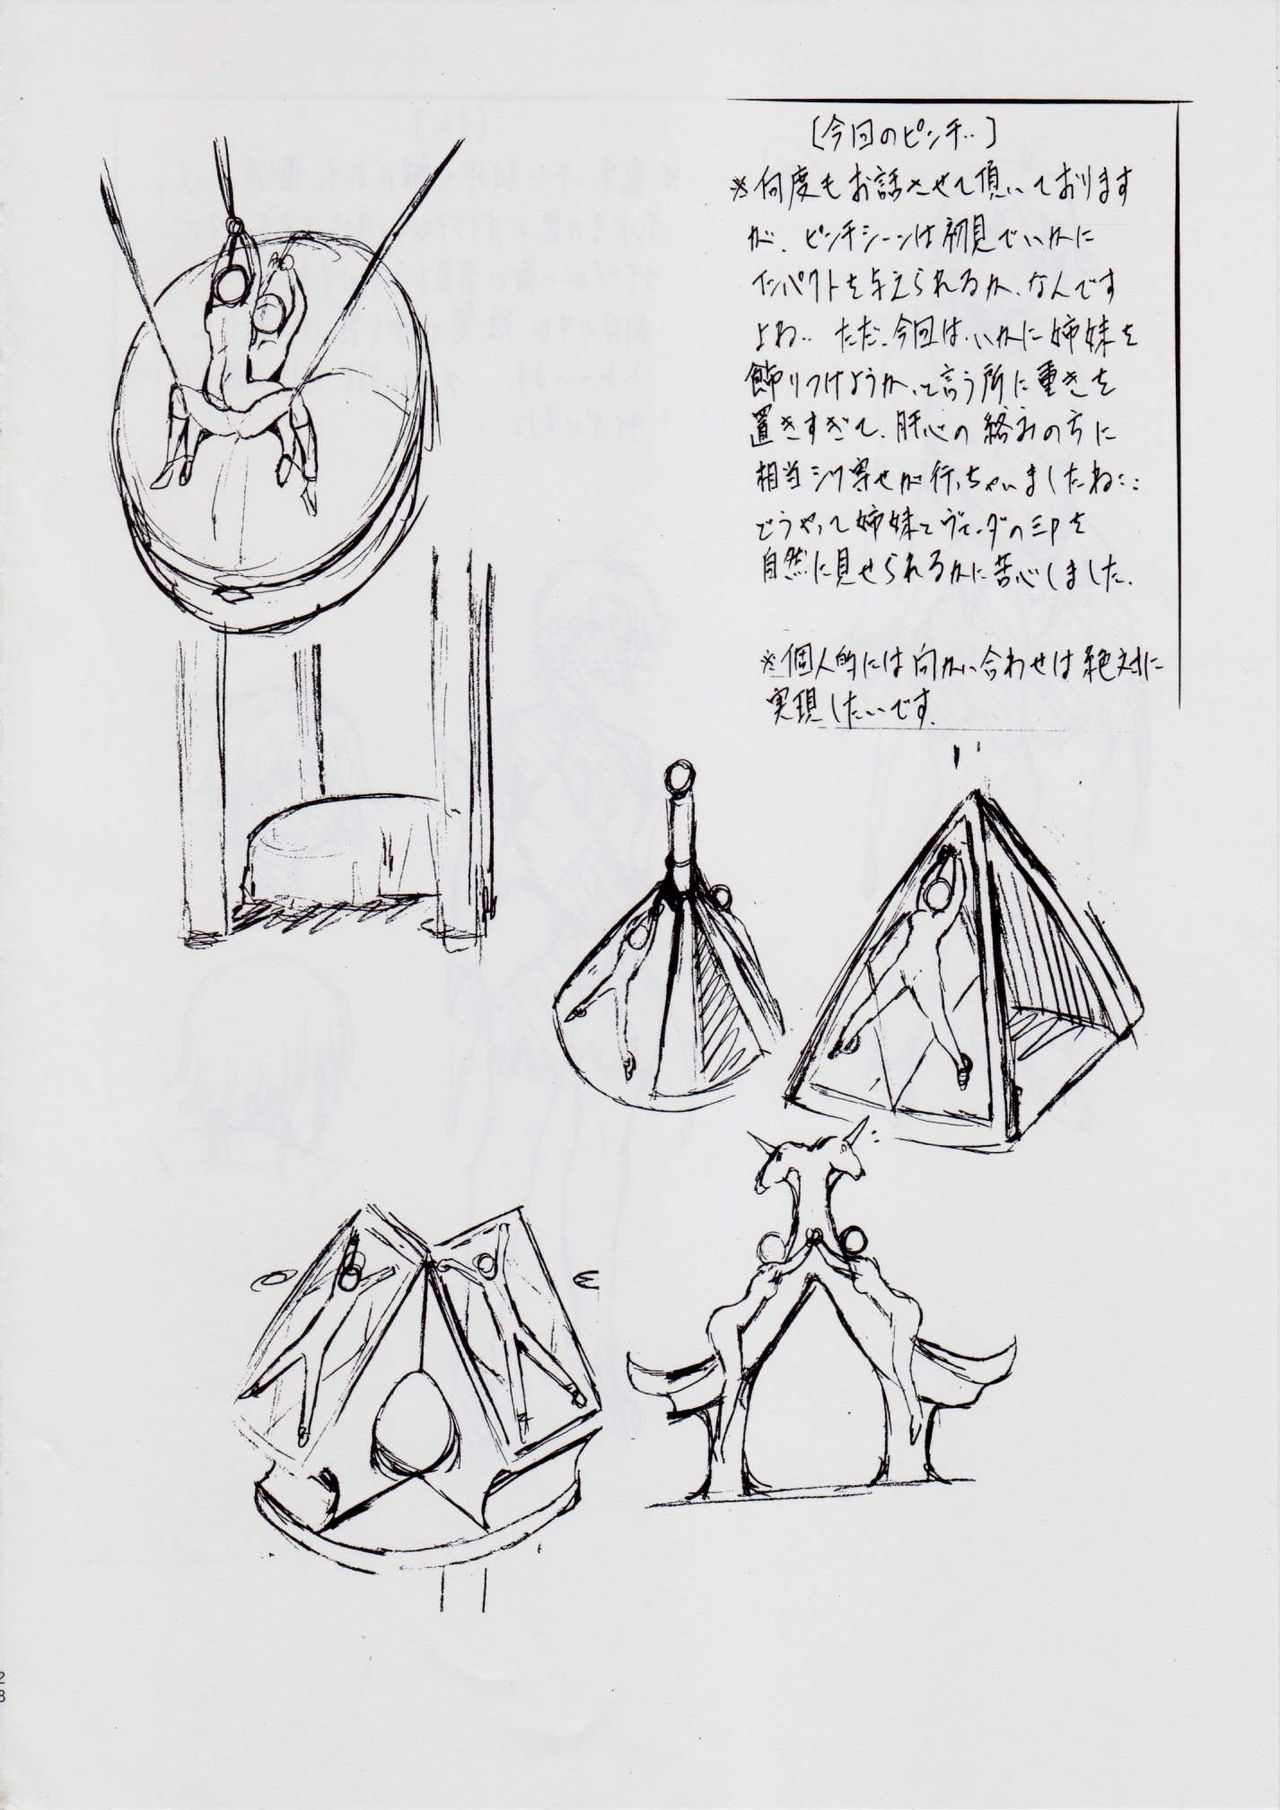 ［今回のピンチ‥］
※何度もお話させて頂いております
が、ピンチシーンは初見でいかに
インパクトを与えられるか、なんです
よね‥ ただ、今回は、いかに姉妹を
飾りつけようか、と言う所に重きを
置きすぎて、肝心の絡みの方に
相当シワ寄せが行っちゃいましたね‥
どうやって姉妹とヴェーダの三Pを
自然に見せられるかに苦心しました.
※個人的には向かい合わせは絶対に
実現したいです.
28